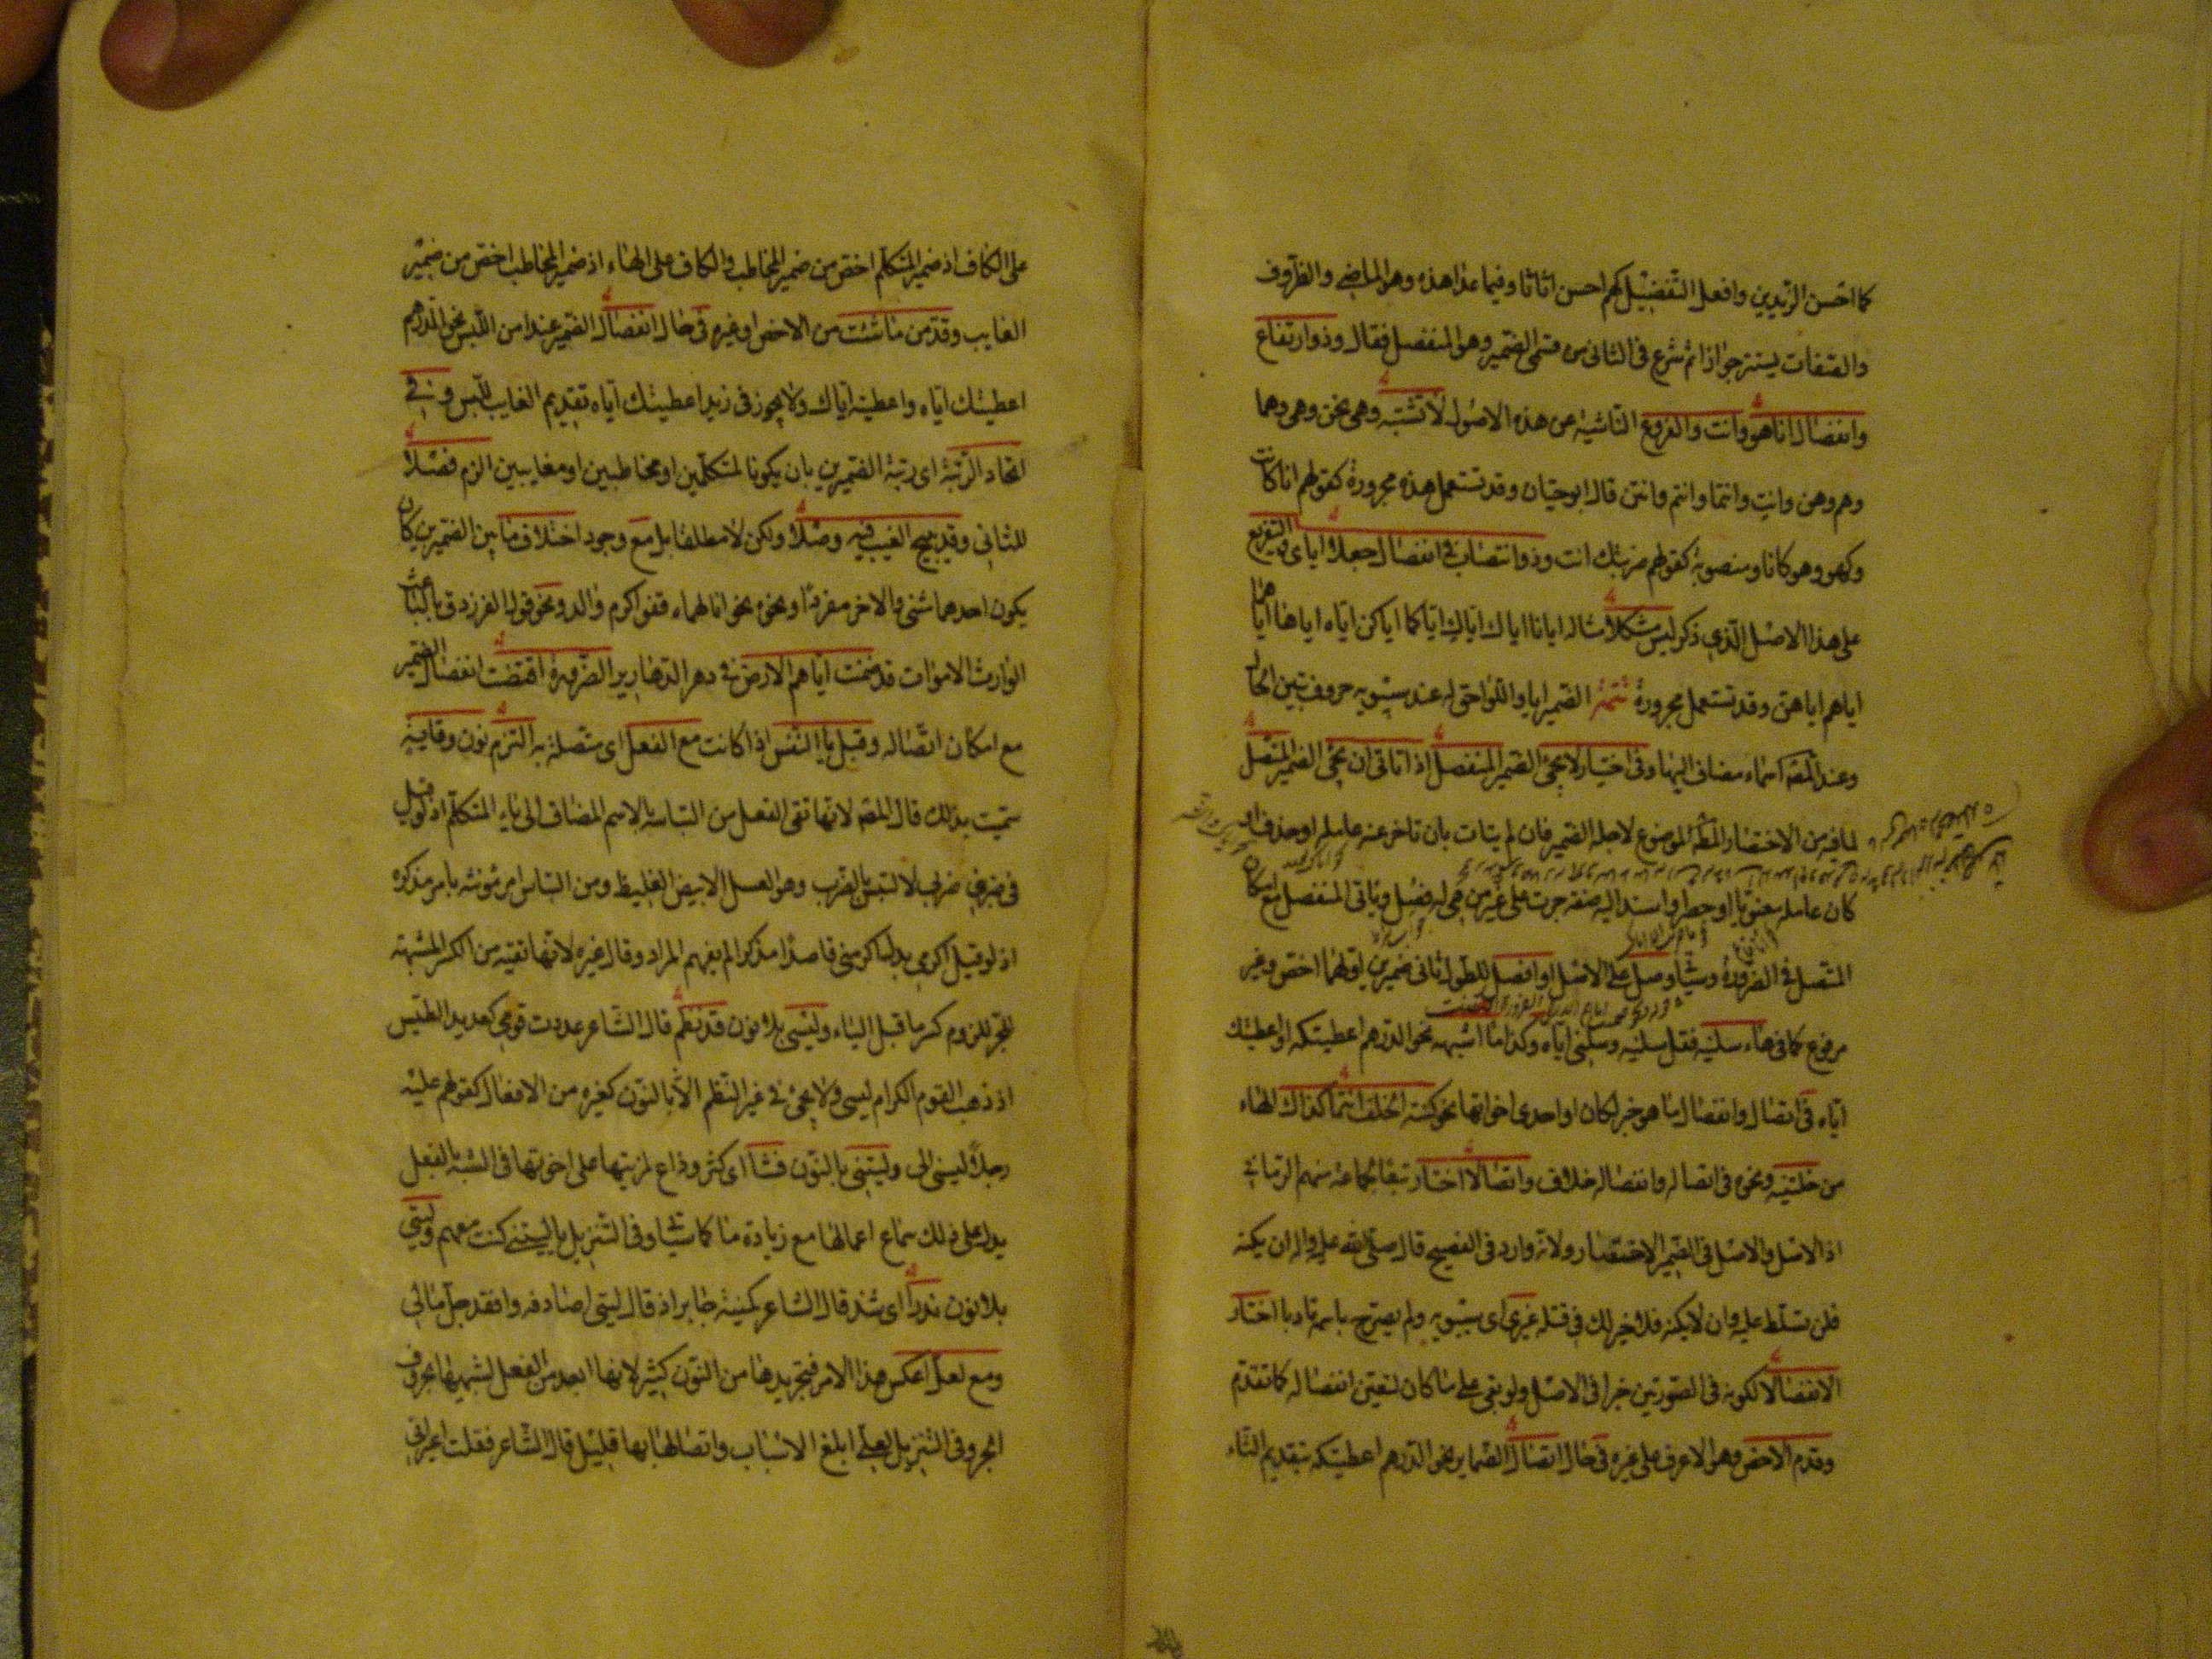 كما احسن الزيدين وافعل التفضيل كهم احسن اثاثا وفيما عدا هذه وهو الماضي والظروف
والصفات يستتر جوازا ثم شرع في الثاني من قسمي الضمير وهو المنفصل فقال وذو ارتفاع
وانفصال انا هو وانت والفروع الناشية عن هذه الاصول لا تشتبه وهي نحن وهي وهما
وهم وهن وانتِ وانتما وانتم وانتن قال ابو حيان وقد تستعمل هذه مجرورة كقولهم انا كانت
وكهو وهو كانا ومنصوبة كقولهم ضربتك انت وذو انتصاب في انفصال جعلا اياي والتفريع
على هذا الاصل الذي ذكر ليس مشكلا مثاله ايانا اياك اياكِ اياكما اياكن اياه اياها اياهما
اياهم اياهن وقد تستعمل مجرورة تتمة الضمير ايا واللواحق له عند سيبويه حروف تبين الحال
وعند المصه اسماء مضاف اليها وفي اختيار لا يجيء الضمير المنفصل اذا تاتى ان يجيء الضمير المتصل
لما فيه من الاختصار المطلوب الموضوع لاجله الضمير فان لم يتات بان تاخر عنه عامله او حذف او
كان عامله معنويا او حصر او اسند اليه صفة جرت على غير من هي له فصل وياتي المنفصل مع امكان
المتصل في الضرورة وسيتا وصل على الاصل او افصل للطول ثاني ضميرين اولهما اخص وغير
مرفوع كما في هاء سلنيه فقل سلنيه وسلني اياه وكذا ما اشبهه نحو الدرهم اعطيتكه او اعطيتك
اياه في اتصال وانفصال ما هو خبر لكان او احدى اخواتها نحو كنته الخلف انتما كذاك الهاء
من خلتنيه ونحوه في اتصاله وانفصاله خلاف واتصالا اختار تبعا لجماعة منهم الرماني
اذ الاصل والاصل في الضمير الاختصار ولانه وارد في الفصيح قال صلى الله عليه واله ان يكنه
فلن تسلط عليه وان لا يكنه فلا خير لك في قتله غيري اي سيبويه ولم يصرح باسمه تادبا اختار
الانفصالا لكونه في الصورتين خبرا في الاصل ولو بقي على ما كان لتعين انفصاله كما تقدم
وقدم الاخص وهو الاعرف على غيره في حال اتصال الضماير نحو الدرهم اعطيتكه بتقديم التاء
على الكاف اذ ضمير المتكلم اخص من ضمير المخاطب والكاف على الهاء اذ ضمير المخاطب اخص من ضمير
الغايب وقدمن ما شئت من الاخص او غيره في حال انفصال الضمير عند امن اللبس نحو الدرهم
اعطيتك اياه واعطيته اياك ولا يجوز في زيد اعطيتك اياه تقديم الغايب للبس وفي
اتحاد الرتبة اى رتبة الضميرين بان يكونا لمتكلمين او مخاطبين او مغايبين الزم فصلا
للثاني وقد يبيح الغيب فيه وصلا ولكن لا مطلقا بل مع وجود اختلاف ما بين الضميرين كان
يكون احدهما مثنى والاخر مفردا او نحوه نحو انالهماه قفو اكرم والد ونحو قول الفرزدق بالباعث
الوارث الاموات قد ضمنت اياهم الارض في دهر الدهارير الضرورة اقتضت انفصال الضمير
مع امكان اتصاله وقبل يا النفس اذا كانت مع الفعل اى متصلة به التزم نون وقاية
سميت بذلك قال المصه لانها تقى الفعل من التباسه بالاسم المضاف الى ياء المتكلم اذ لو قيل
في ضربني ضربى لالتبس بالضرب وهو العسل الابيض الغليظ ومن التباس امر مؤنثه بامر مذكره
اذ لو قيل اكرمي بدل اكرمني قاصدا مذكرا لم يفهم المراد وقال غيره لانها تقيه من الكسر المشبه
للجر للزوم كسر ما قبل الياء وليسى بلا نون قد نظم قال الشاعر عددت قومي كعديد الطيس
اذ ذهب القوم الكرام ليسى ولا يجئ في غير النظم الا بالنون كغيره من الافعال كقولهم عليه
رجلا ليسنى الى وليتني بالنون فشا اى كثر وذاع لمزيتها على اخواتها في الشبه بالفعل
يدل على ذلك سماع اعمالها مع زيادة ما كما سيتا وفى التنزيل يا ليتني كنت معهم وليتي
بلا نون ندرا اى شذ قال الشاعر كمنية جابر اذ قال ليتى اصادفه وافقد جل مالي
ومع لعل اعكس هذا الامر فتجريدها من النون كثير لانها ابعد من الفعل لشبهها بحروف
الجر وفى التنزيل لعلي ابلغ الاسباب واتصالها بها قليل قال الشاعر فقلت اعيراني